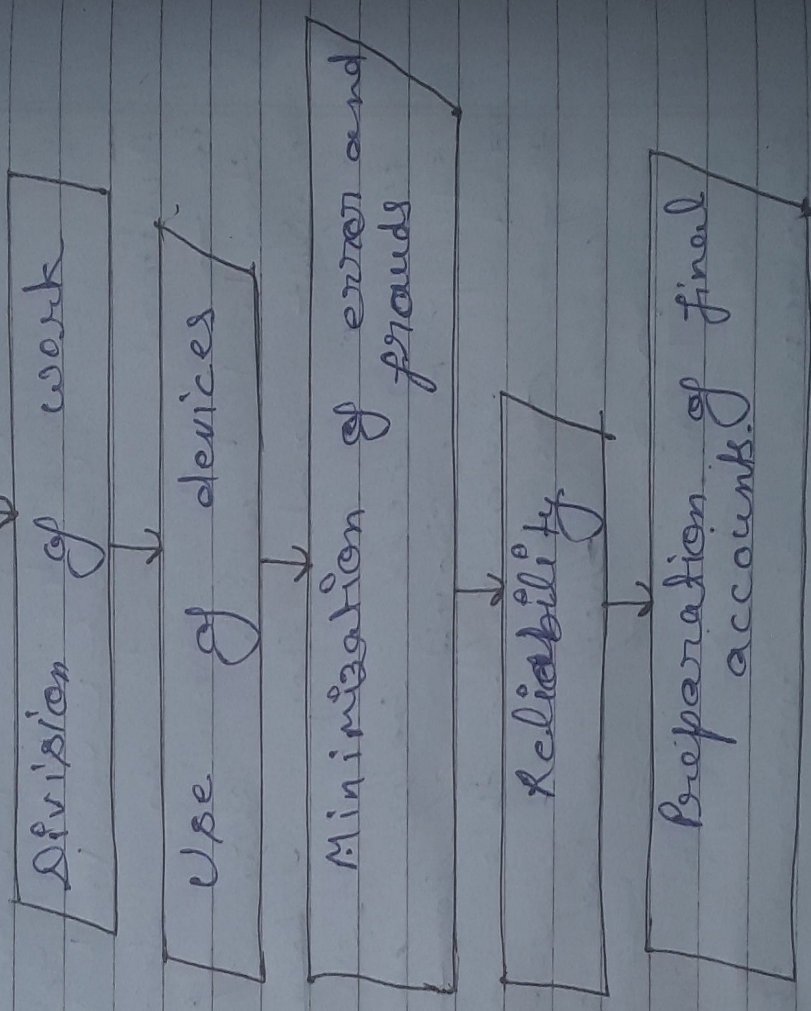 Division of work
Use of devices
Minimization of error and
frauds
Reliability
Preparation of final
accounts.